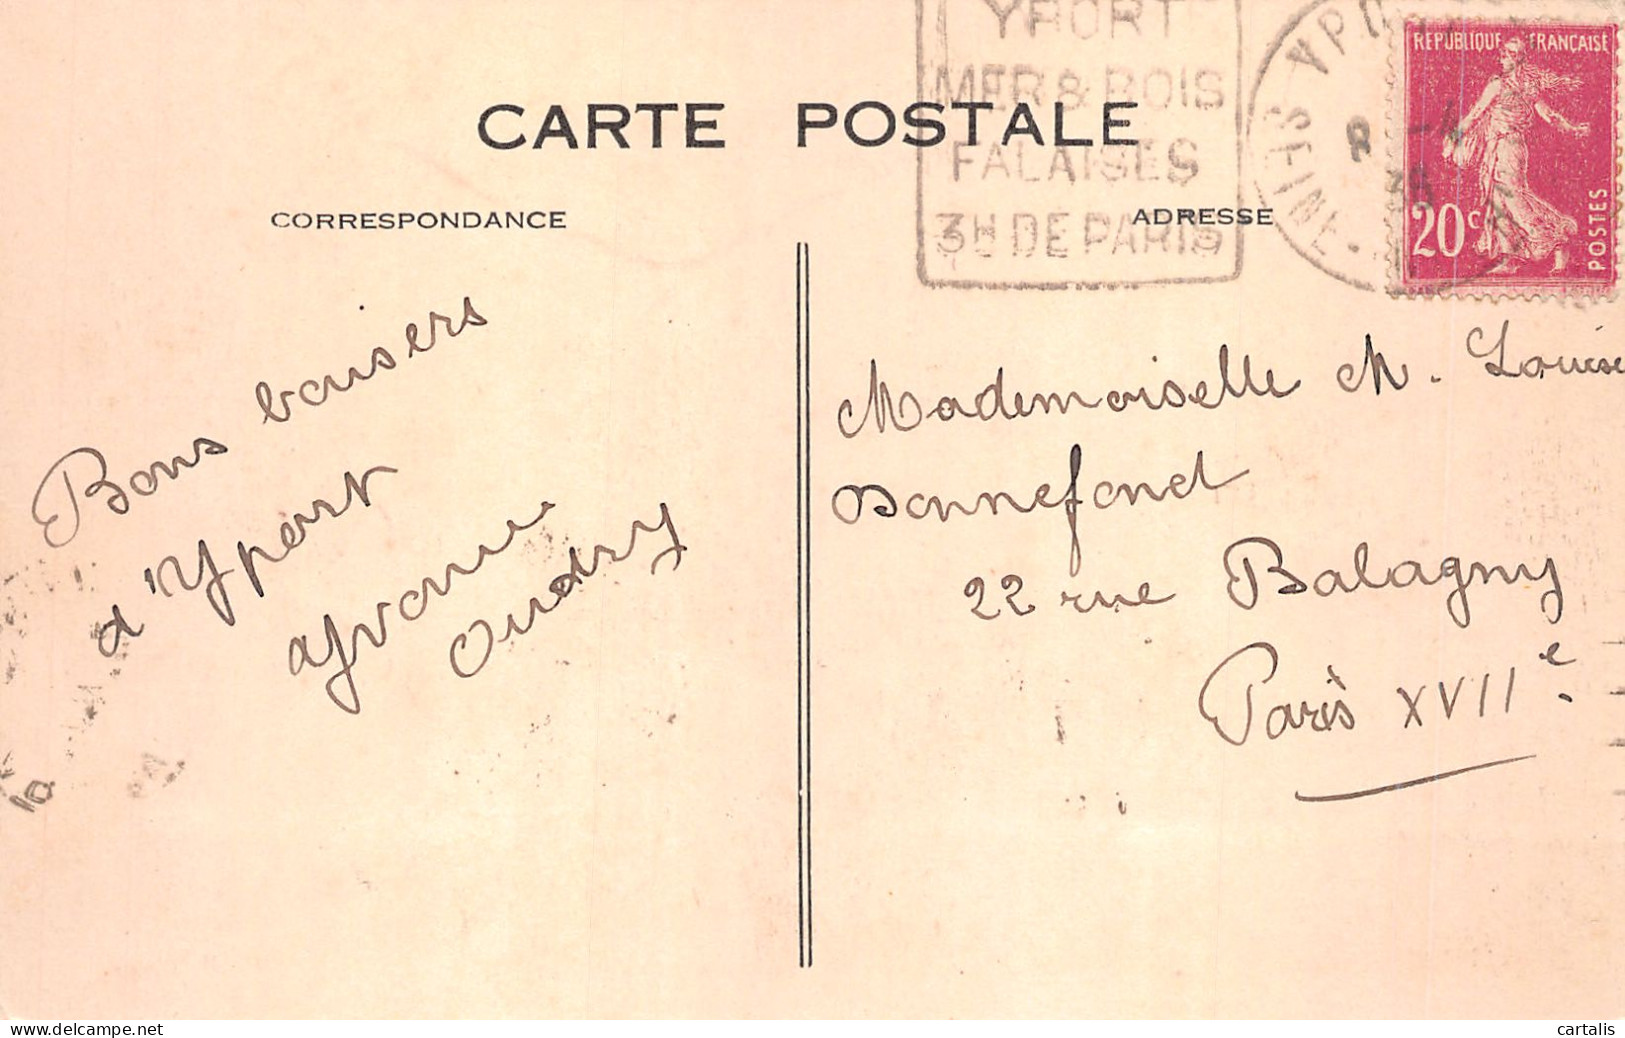 YPORT
MER & BOIS
FALAISES
3H DE PARIS
YPORT
SEINE
8 -4
REPUBLIQUE FRANÇAISE
20c
POSTES
CARTE POSTALE
CORRESPONDANCE
ADRESSE
Bons baisers
d'Yport
Yvonne
Oudry
Mademoiselle M. Louise
Bonnefond
22 rue Balagny
Paris XVIIe
delcampe.net
cartalis